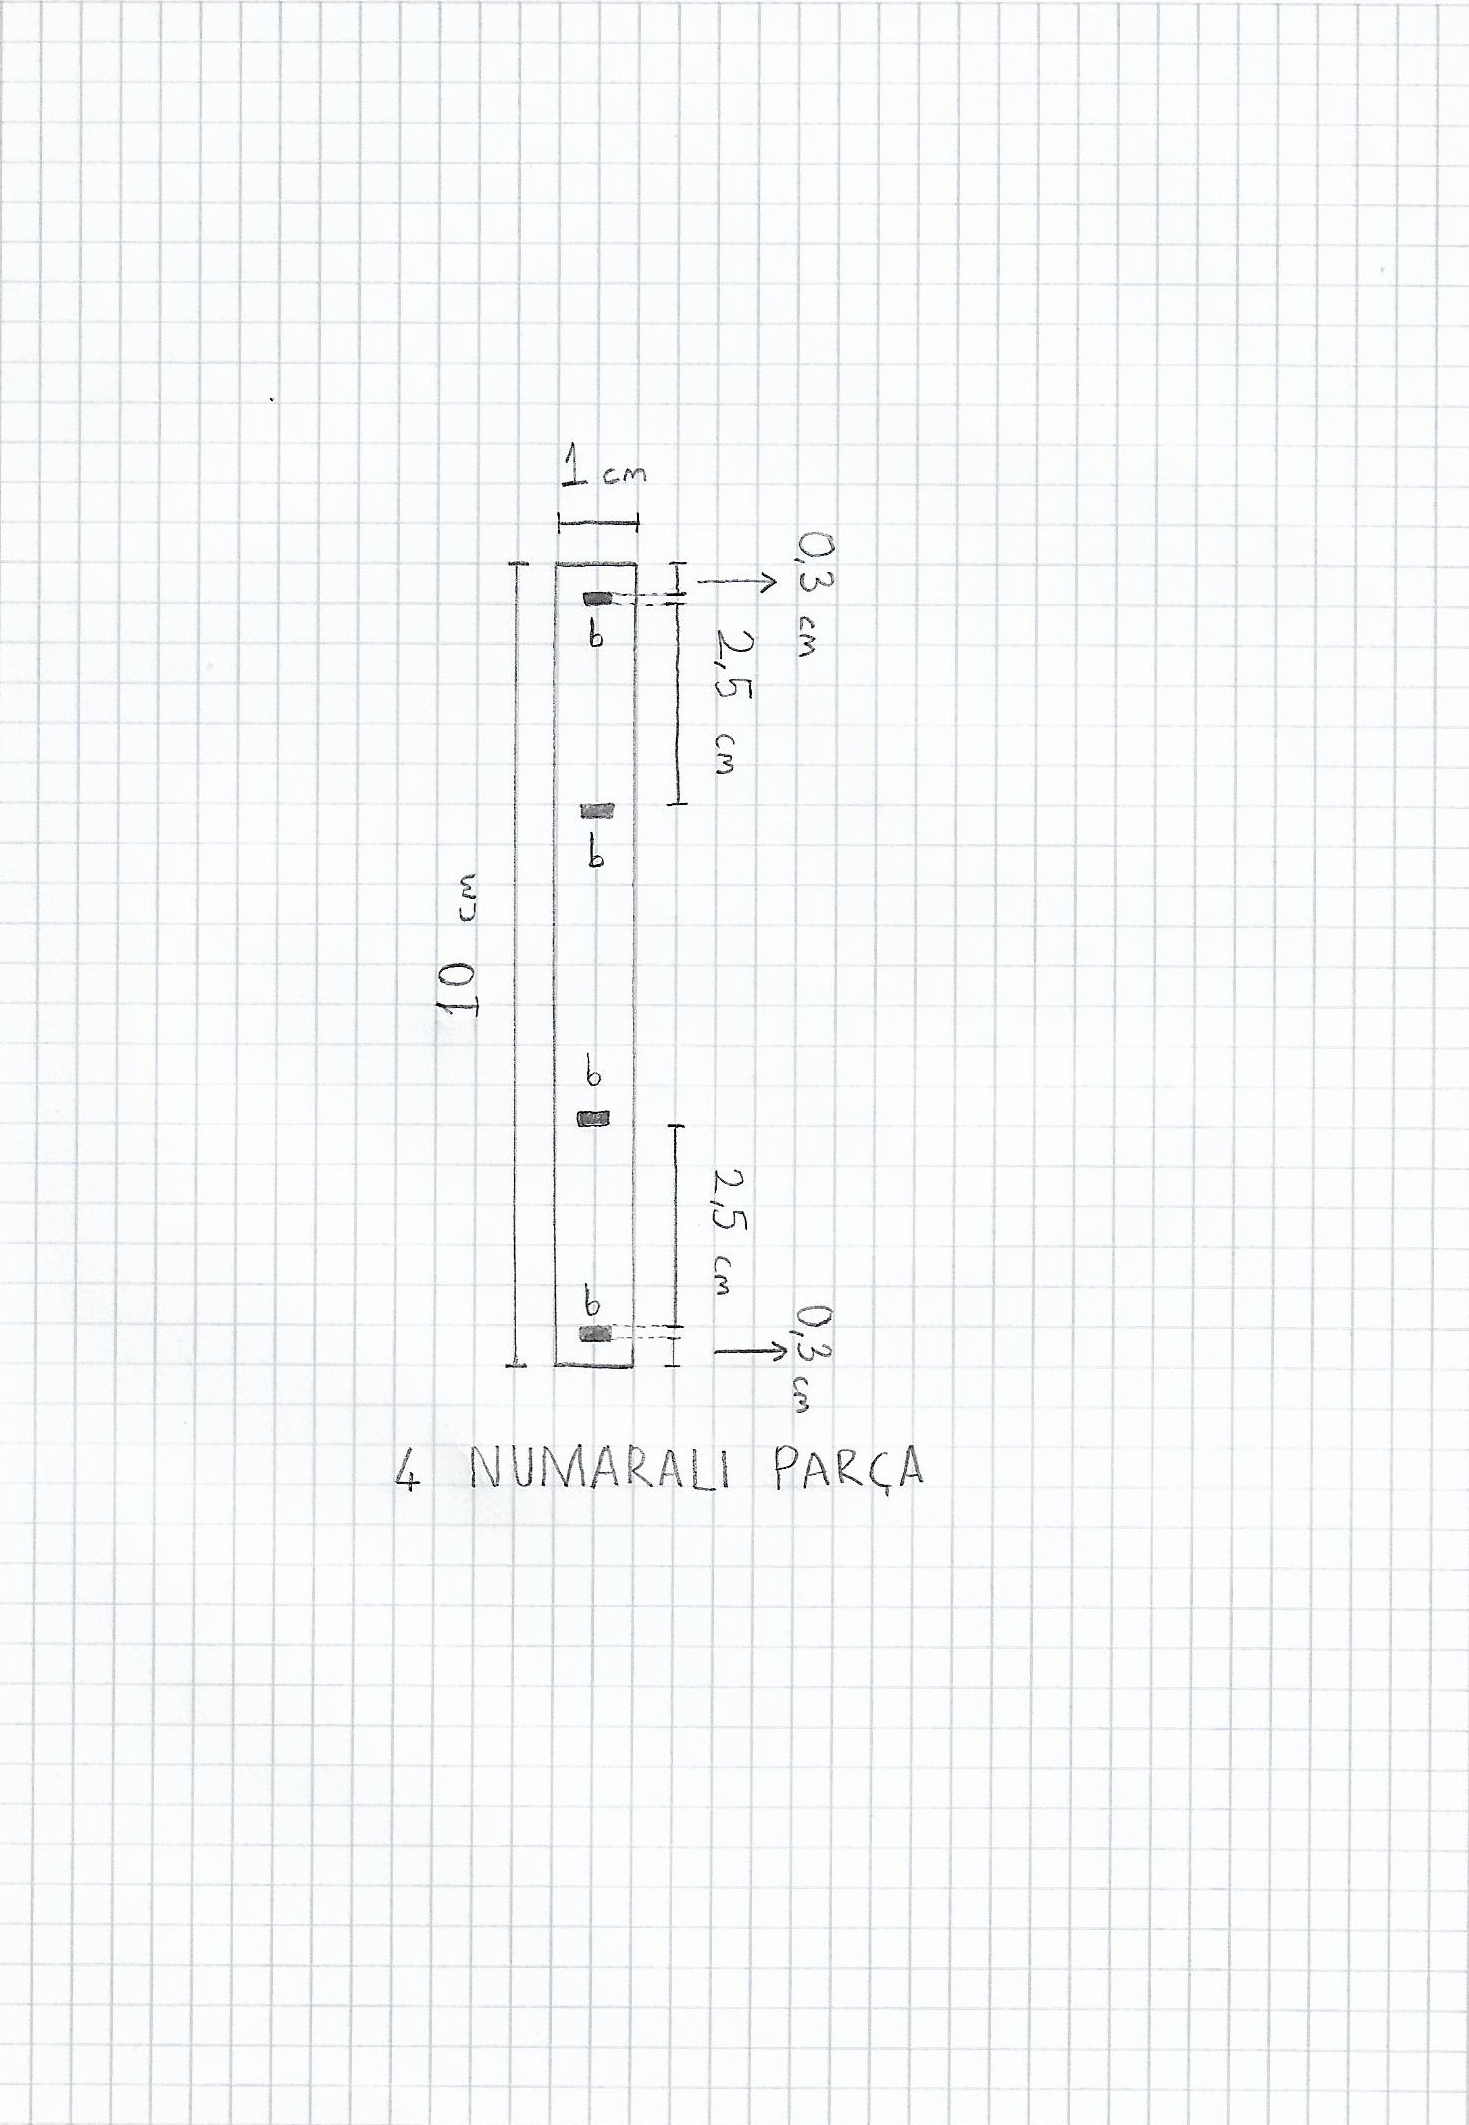 1 cm
0,3 cm
2,5 cm
b
b
10 cm
b
2,5 cm
b
0,3 cm
4 NUMARALI PARÇA